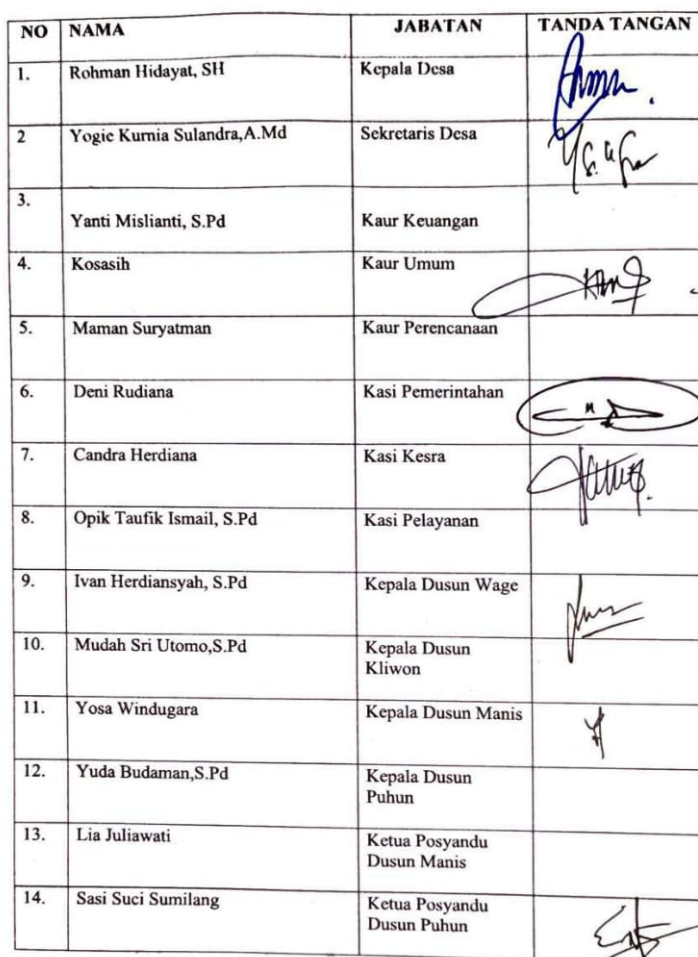 NO NAMA JABATAN TANDA TANGAN
1. Rohman Hidayat, SH Kepala Desa
2 Yogie Kurnia Sulandra,A.Md Sekretaris Desa
3.
Yanti Mislianti, S.Pd Kaur Keuangan
4. Kosasih Kaur Umum
5. Maman Suryatman Kaur Perencanaan
6. Deni Rudiana Kasi Pemerintahan
7. Candra Herdiana Kasi Kesra
8. Opik Taufik Ismail, S.Pd Kasi Pelayanan
9. Ivan Herdiansyah, S.Pd Kepala Dusun Wage
10. Mudah Sri Utomo,S.Pd Kepala Dusun
Kliwon
11. Yosa Windugara Kepala Dusun Manis
12. Yuda Budaman,S.Pd Kepala Dusun
Puhun
13. Lia Juliawati Ketua Posyandu
Dusun Manis
14. Sasi Suci Sumilang Ketua Posyandu
Dusun Puhun